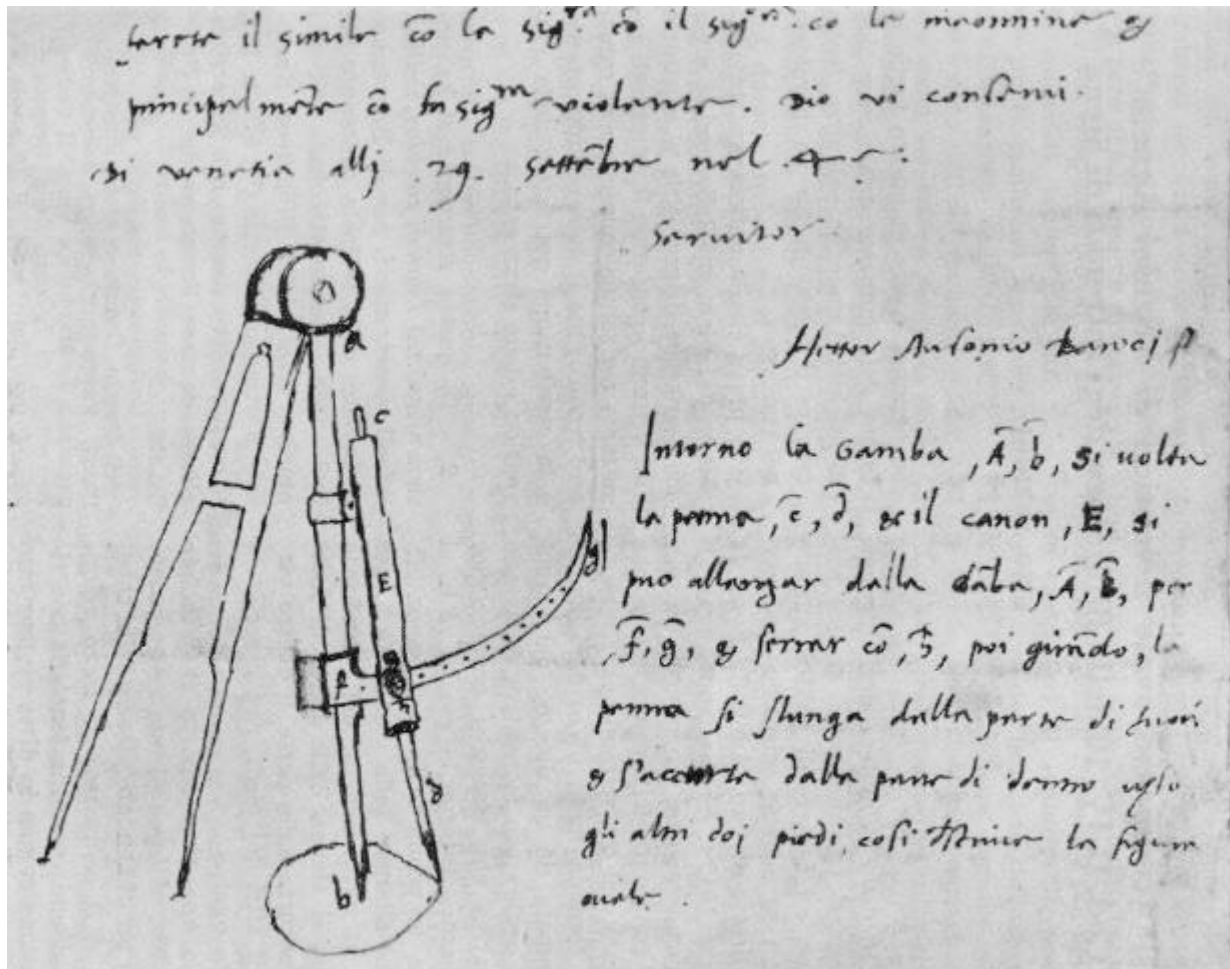 farete il simile cō la sig.ra cō il sig.or co le
principalmēte cō la sig.ra violante. Dio vi conserui.
di venetia allj .29. settēbre nel
seruitor
Hettor Antonio
a
c
E
g
f
d
b
Intorno la Gamba, A, b, si uolta
la penna, c, d, & il canon, E, si
puo allongar dalla Gāba, A, B, per
f, g, & serrar cō, 3, poi girādo, la
penna si slunga dalla parte di fuori
& s'accurta dalla parte di dentro
gli altri doi piedi, cosi la figura
ouale.